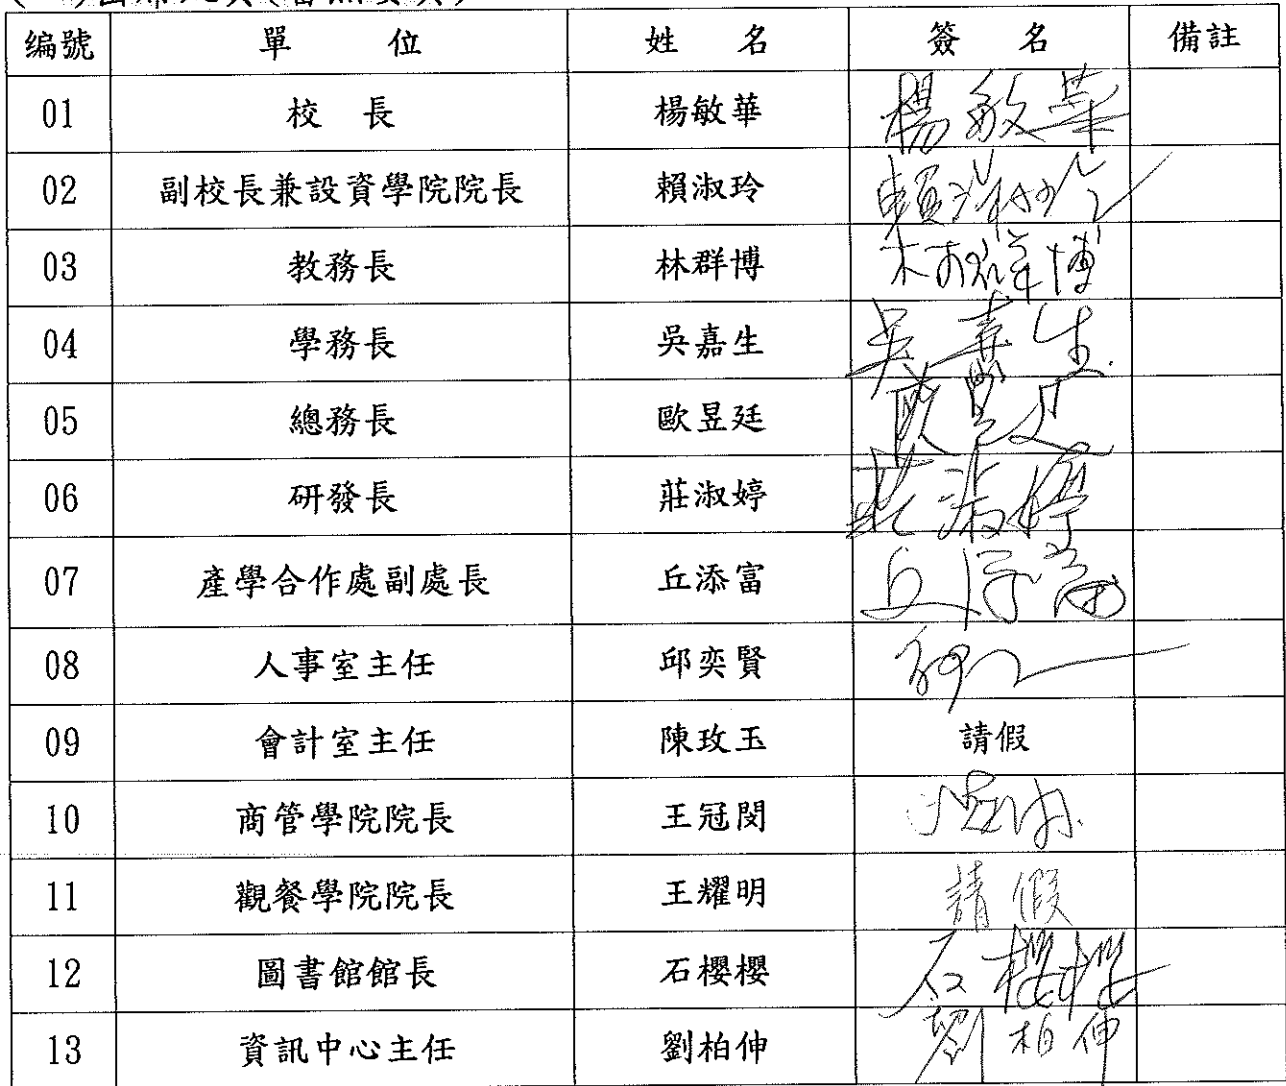 編號 單 位 姓 名 簽 名 備註
01 校 長 楊敏華 楊敏華
02 副校長兼設資學院院長 賴淑玲 賴淑玲
03 教務長 林群博 林群博
04 學務長 吳嘉生 吳嘉生
05 總務長 歐昱廷
06 研發長 莊淑婷 莊淑婷
07 產學合作處副處長 丘添富 丘添富
08 人事室主任 邱奕賢
09 會計室主任 陳玫玉 請假
10 商管學院院長 王冠閔
11 觀餐學院院長 王耀明 請假
12 圖書館館長 石櫻櫻 石櫻櫻
13 資訊中心主任 劉柏伸 劉柏伸